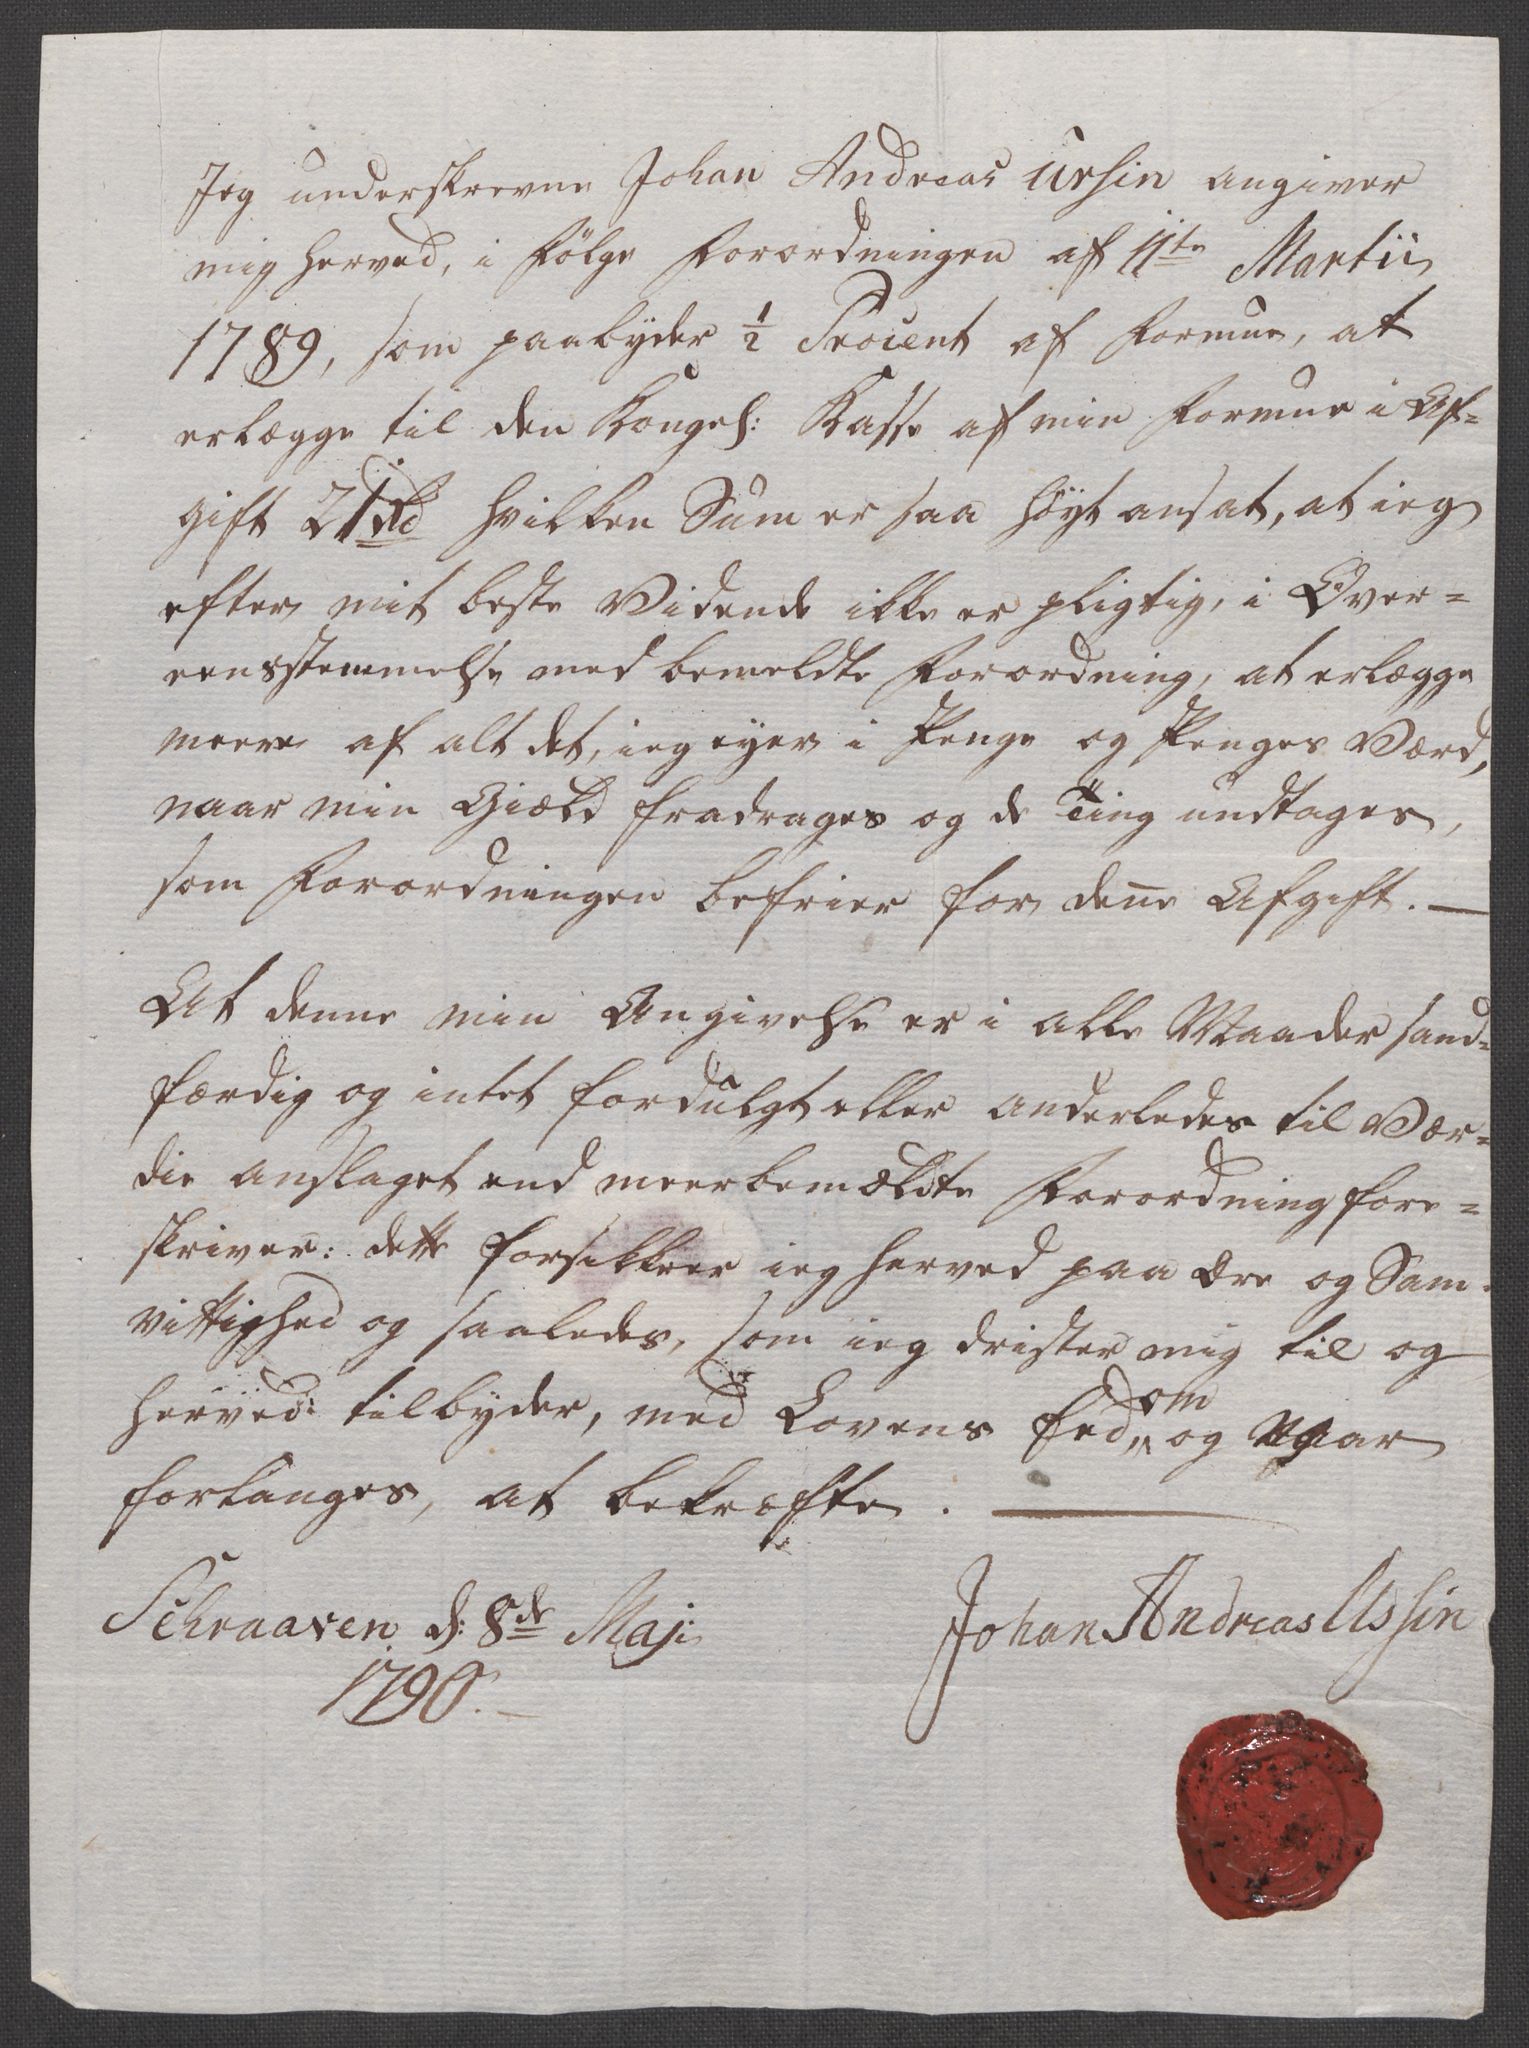 Jeg underskrevne Johan Andreas Ursin angiver
mig herved, i Følge Forordningen af 11te Martii
1789, som paabyder ½ Procent af Formue, at
erlægge til den Kongel: Kasse af min Formue i Af=
gift 21 Rd hvilken Sum er saa høyt ansat, at ieg
efter mit beste Vidende ikke er pligtig, i Over=
eensstemmelse med bemeldte Forordning, at erlægge
meere af alt det, ieg eyer i Penge og Penges Værd,
naar min Giæld fradrages og de Ting undtages,
som Forordningen befrier for denne Afgift. —
At denne min Angivelse er i alle Maader sand=
færdig og intet fordulgt eller anderledes til Vær=
die anslaget end meerbemældte Forordning fore=
skriver: dette forsikkrer ieg herved paa Ære og Sam=
vittighed og saaledes, som ieg drister mig til og
herved: tilbyder, med Lovens Eed, om og naar
forlanges, at bekræfte. —
Schraaven d: 8de Maji
1790. —
Johan Andreas Ursin